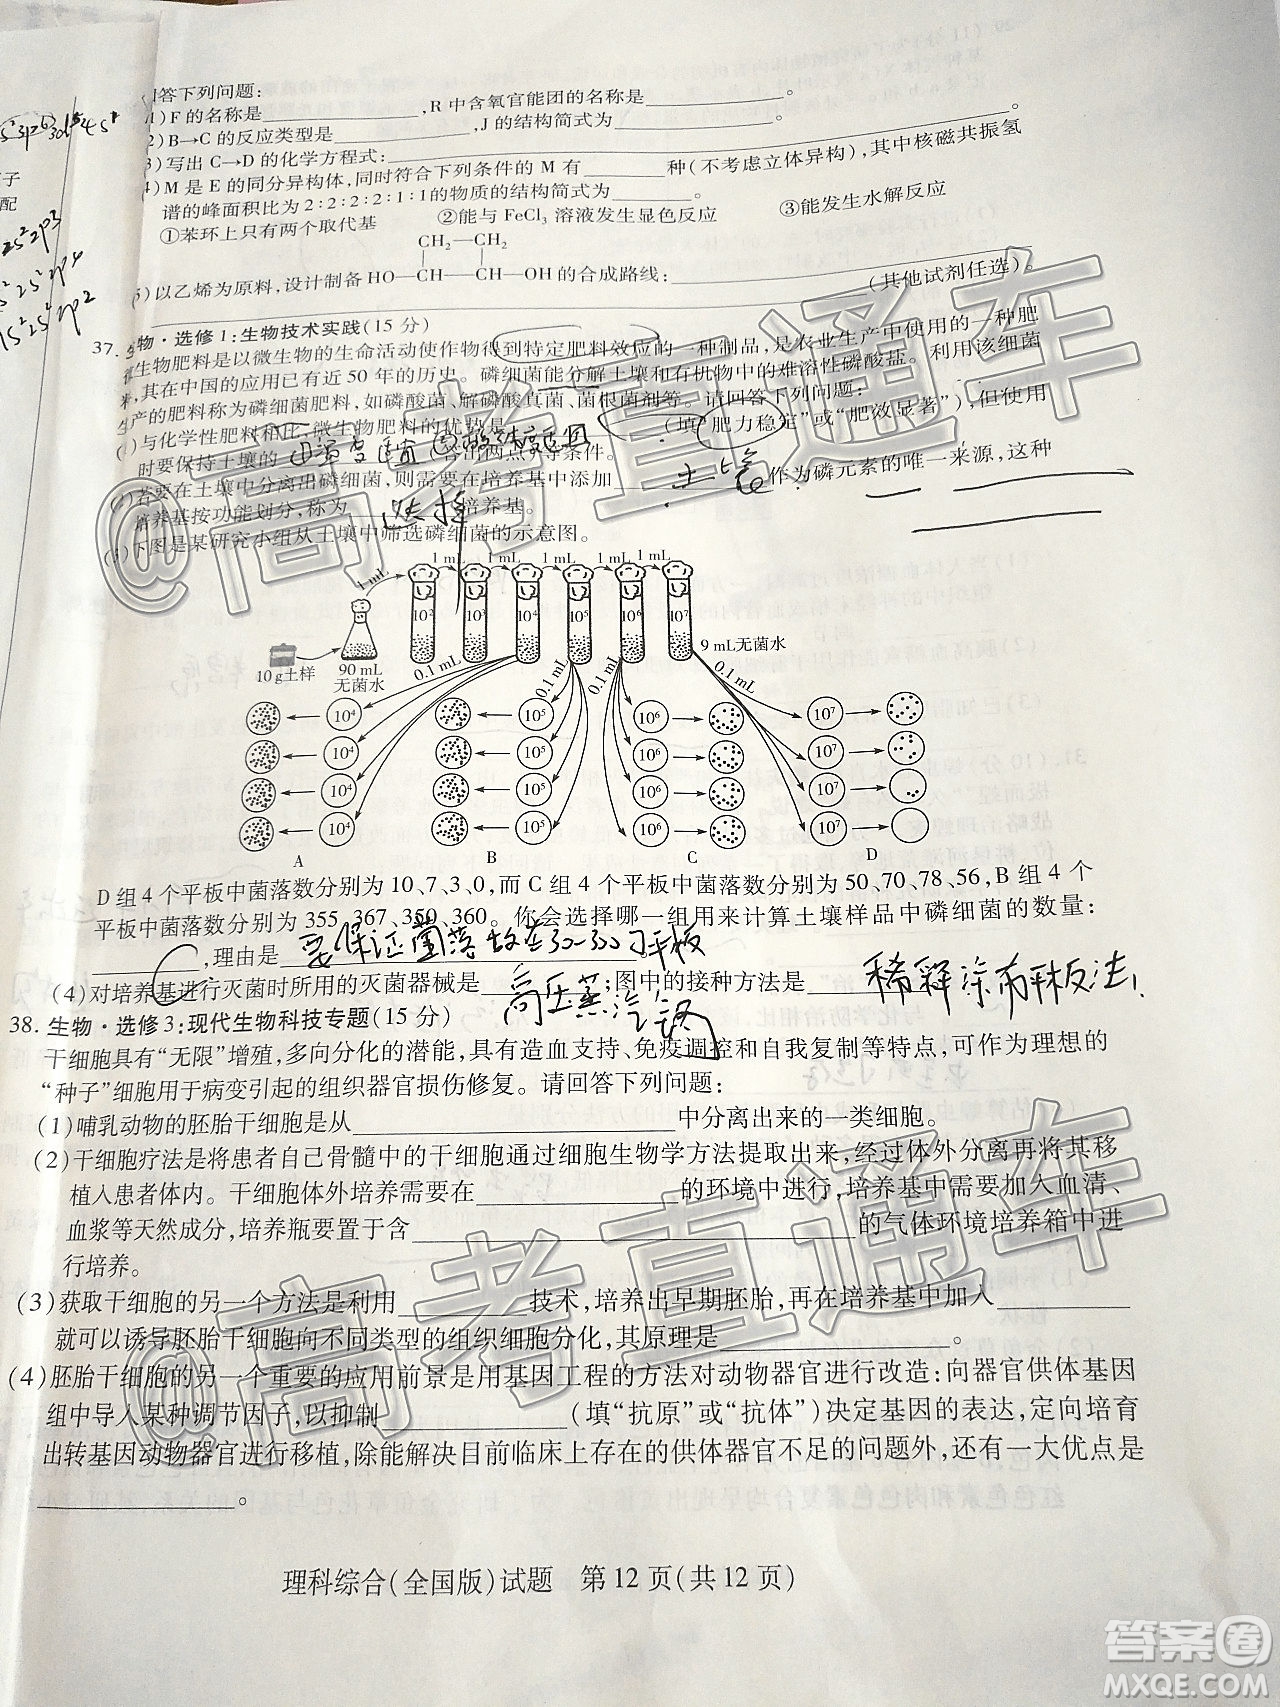 回答下列问题:
(1)F的名称是__________,R中含氧官能团的名称是__________。
(2)B→C的反应类型是__________,J的结构简式为__________。
(3)写出C→D的化学方程式:__________
(4)M是E的同分异构体,同时符合下列条件的M有______种(不考虑立体异构),其中核磁共振氢
谱的峰面积比为2:2:2:2:1:1的物质的结构简式为__________。
①苯环上只有两个取代基 ②能与FeCl3溶液发生显色反应 ③能发生水解反应
CH2—CH2
(5)以乙烯为原料,设计制备HO—CH—CH—OH的合成路线:__________
__________(其他试剂任选)。
37. 生物·选修1:生物技术实践(15分)
微生物肥料是以微生物的生命活动使作物得到特定肥料效应的一种制品,是农业生产中使用的一种肥
料,其在中国的应用已有近50年的历史。磷细菌能分解土壤和有机物中的难溶性磷酸盐。利用该细菌
生产的肥料称为磷细菌肥料,如磷酸菌、解磷酸真菌、菌根菌剂等。请回答下列问题:
(1)与化学性肥料相比,微生物肥料的优势是__________(填“肥力稳定”或“肥效显著”),但使用
时要保持土壤的__________(答出两点)等条件。
(2)若要在土壤中分离出磷细菌,则需要在培养基中添加__________作为磷元素的唯一来源,这种
培养基按功能划分,称为 选择 培养基。
(3)下图是某研究小组从土壤中筛选磷细菌的示意图。
1 mL 1 mL 1 mL 1 mL 1 mL 1 mL
10² 10³ 10⁴ 10⁵ 10⁶ 10⁷
9 mL无菌水
10 g土样 90 mL
无菌水
0.1 mL 0.1 mL 0.1 mL 0.1 mL
10⁴ 10⁵ 10⁶ 10⁷
10⁴ 10⁵ 10⁶ 10⁷
10⁴ 10⁵ 10⁶ 10⁷
10⁴ 10⁵ 10⁶ 10⁷
A B C D
D组4个平板中菌落数分别为10、7、3、0,而C组4个平板中菌落数分别为50、70、78、56,B组4个
平板中菌落数分别为355、367、350、360。你会选择哪一组用来计算土壤样品中磷细菌的数量:
C,理由是 要保证菌落数在30-300的平板
(4)对培养基进行灭菌时所用的灭菌器械是 高压蒸汽锅;图中的接种方法是 稀释涂布平板法。
38. 生物·选修3:现代生物科技专题(15分)
干细胞具有“无限”增殖,多向分化的潜能,具有造血支持、免疫调控和自我复制等特点,可作为理想的
“种子”细胞用于病变引起的组织器官损伤修复。请回答下列问题:
(1)哺乳动物的胚胎干细胞是从__________中分离出来的一类细胞。
(2)干细胞疗法是将患者自己骨髓中的干细胞通过细胞生物学方法提取出来,经过体外分离再将其移
植入患者体内。干细胞体外培养需要在__________的环境中进行,培养基中需要加入血清、
血浆等天然成分,培养瓶要置于含__________的气体环境培养箱中进
行培养。
(3)获取干细胞的另一个方法是利用__________技术,培养出早期胚胎,再在培养基中加入__________
就可以诱导胚胎干细胞向不同类型的组织细胞分化,其原理是__________。
(4)胚胎干细胞的另一个重要的应用前景是用基因工程的方法对动物器官进行改造:向器官供体基因
组中导入某种调节因子,以抑制__________(填“抗原”或“抗体”)决定基因的表达,定向培育
出转基因动物器官进行移植,除能解决目前临床上存在的供体器官不足的问题外,还有一大优点是
__________。
理科综合(全国版)试题 第12页(共12页)
@高考直通车
@高考直通车
答案圈
MXQE.COM